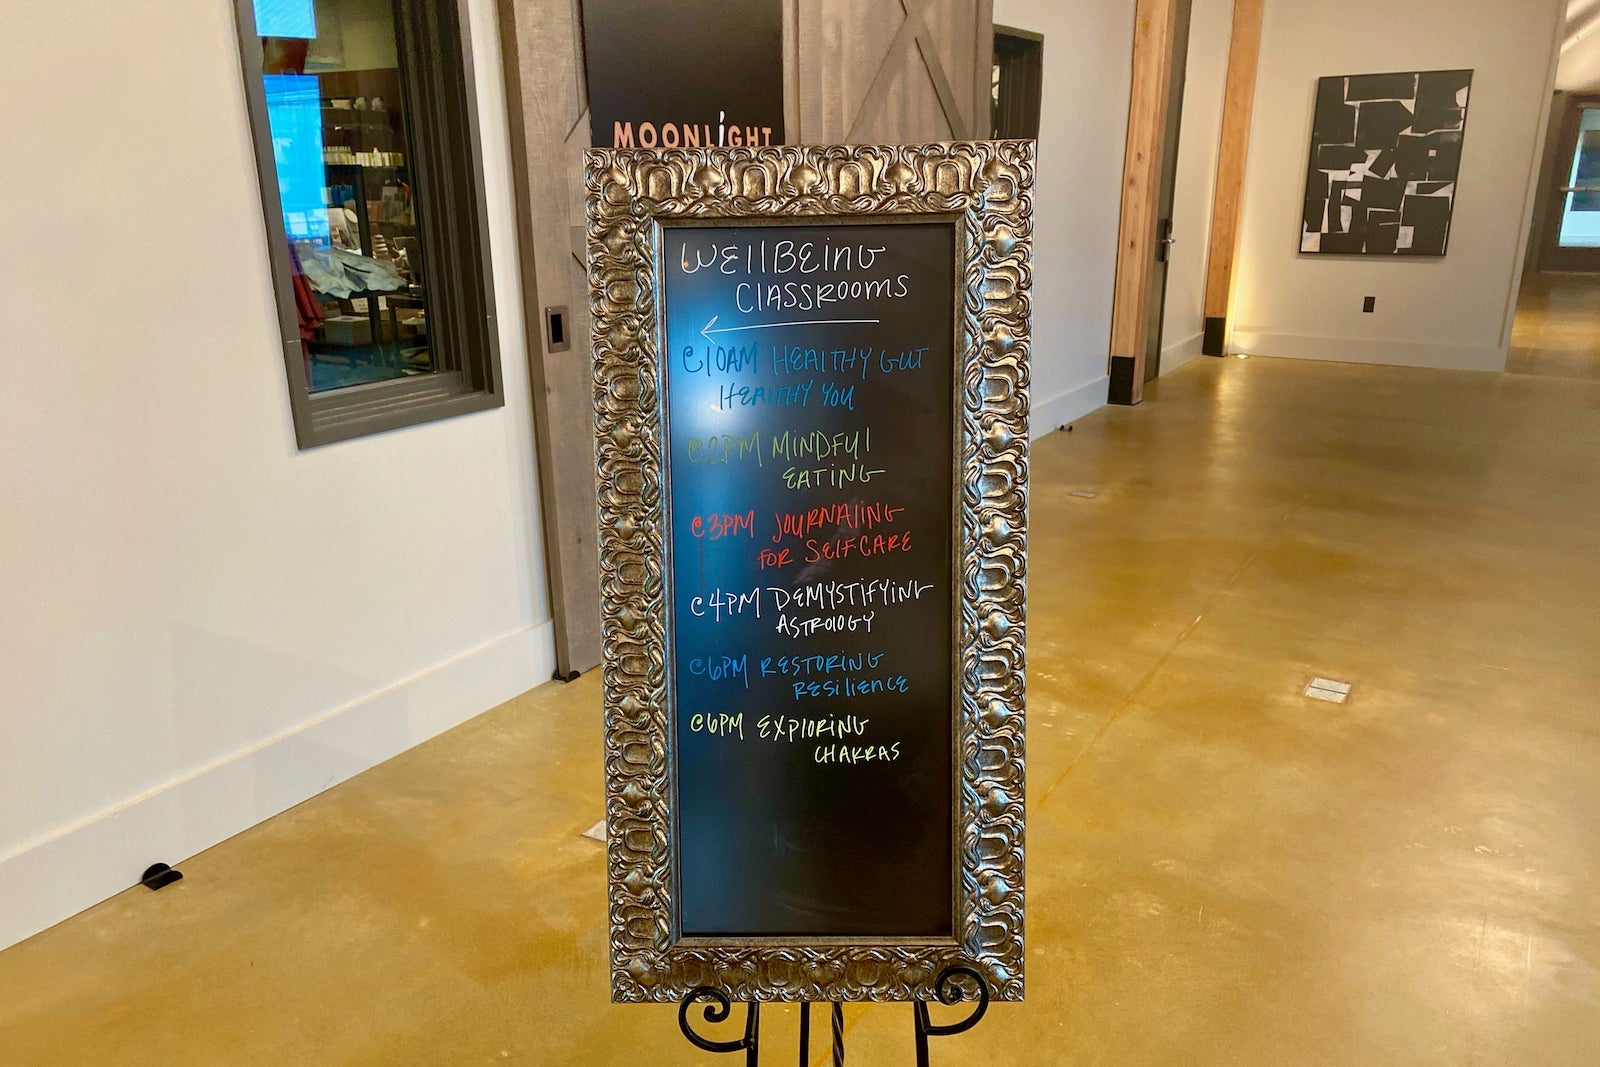 MOONLiGHT
WEllBEinG
ClASSROOMS
@10AM HEAlTHY GUT
HEAlTHY YOU
@2PM MiNDFUl
EATiNG
@3PM JOURNAliNG
FOR SElFCARE
@4PM DEMYSTiFYiNG
ASTROlOGY
@6PM RESTORiNG
RESiliENCE
@6PM EXPlORiNG
CHAKRAS